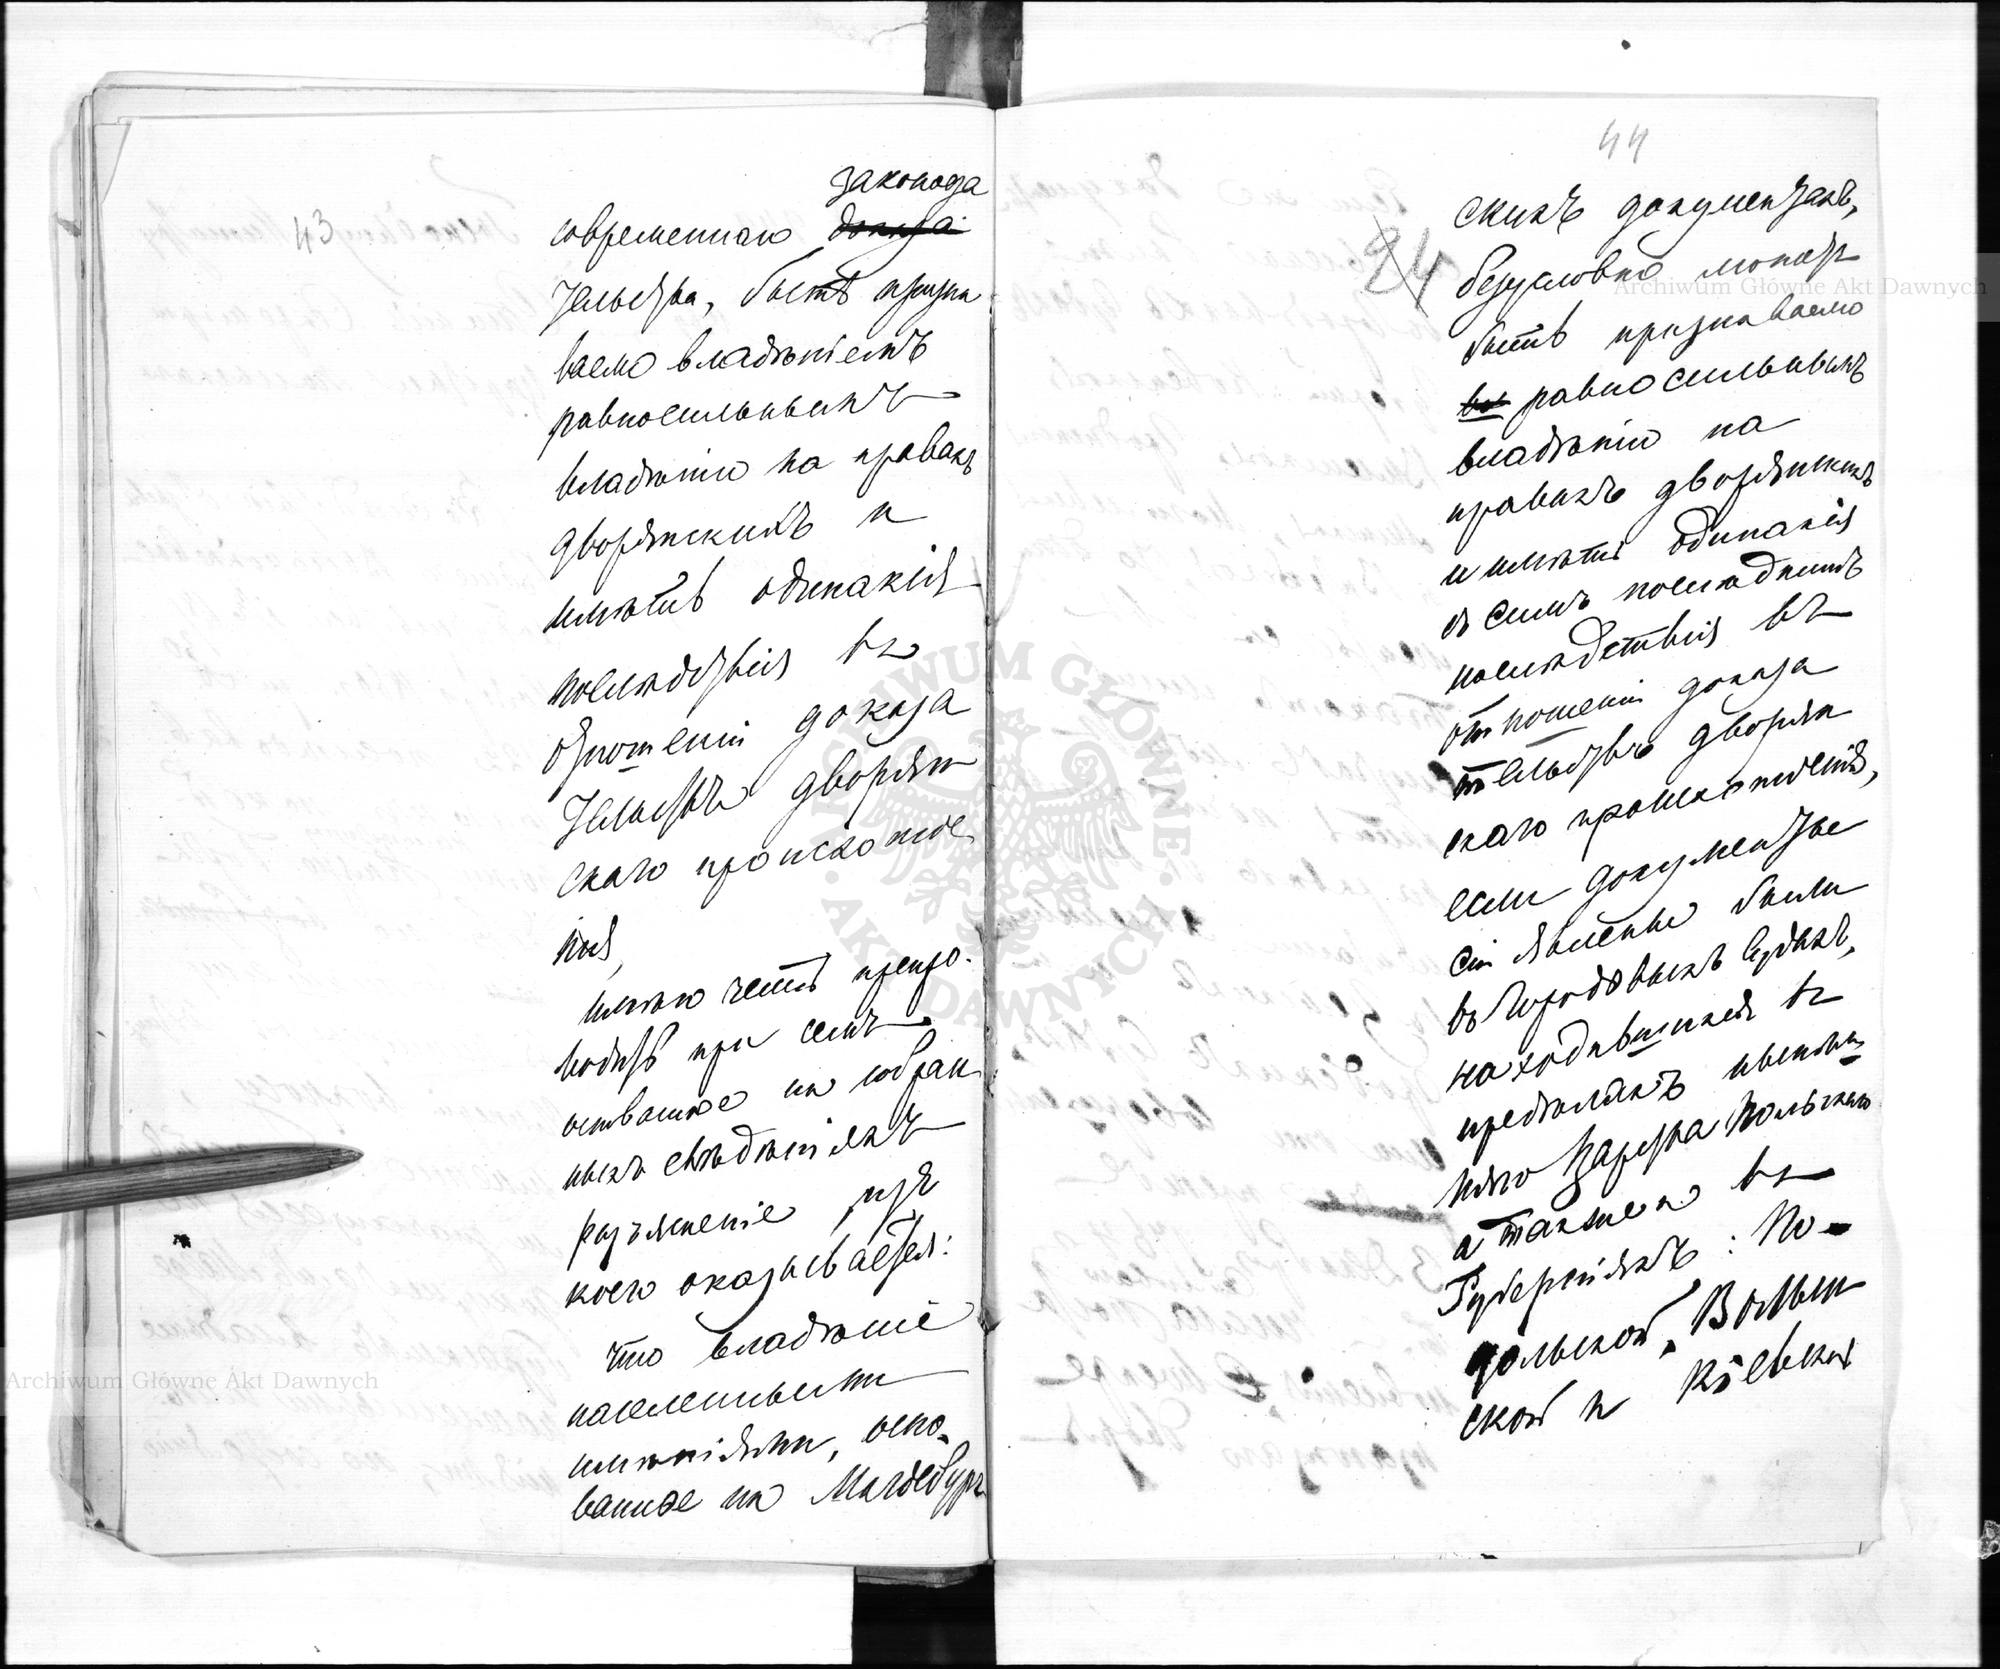 43
законода
современнаго доказа
тельства, быть призна
ваемо владѣніемъ
равносильнымъ
владѣнію на правахъ
дворянскихъ и
имѣть одинакія
послѣдствія въ
отношеніи доказа
тельствъ дворян
скаго происхожде
нія,
имѣю честь препро-
водить при семъ
основанное на собран
ныхъ свѣдѣніяхъ
разъясненіе изъ
коего оказывается:
что владѣніе
населенными
имѣніями, осно-
ванное на Магдебург
44
24
скихъ документахъ,
безусловно можетъ
быть признаваемо
равносильнымъ
владѣнію на
правахъ дворянскихъ
и имѣть одинакія
съ симъ послѣднимъ
послѣдствія въ
отношеніи доказа
тельствъ дворян
скаго происхожденія,
если документы
сіи явлены были
въ Городовыхъ Судахъ,
находившихся въ
предѣлахъ нынѣш
няго Царства Польскаго
а также въ
Губерніяхъ: По-
дольской, Волын
ской и Кіевской
Archiwum Główne Akt Dawnych
Archiwum Główne Akt Dawnych
ARCHIWUM GŁÓWNE AKT DAWNYCH